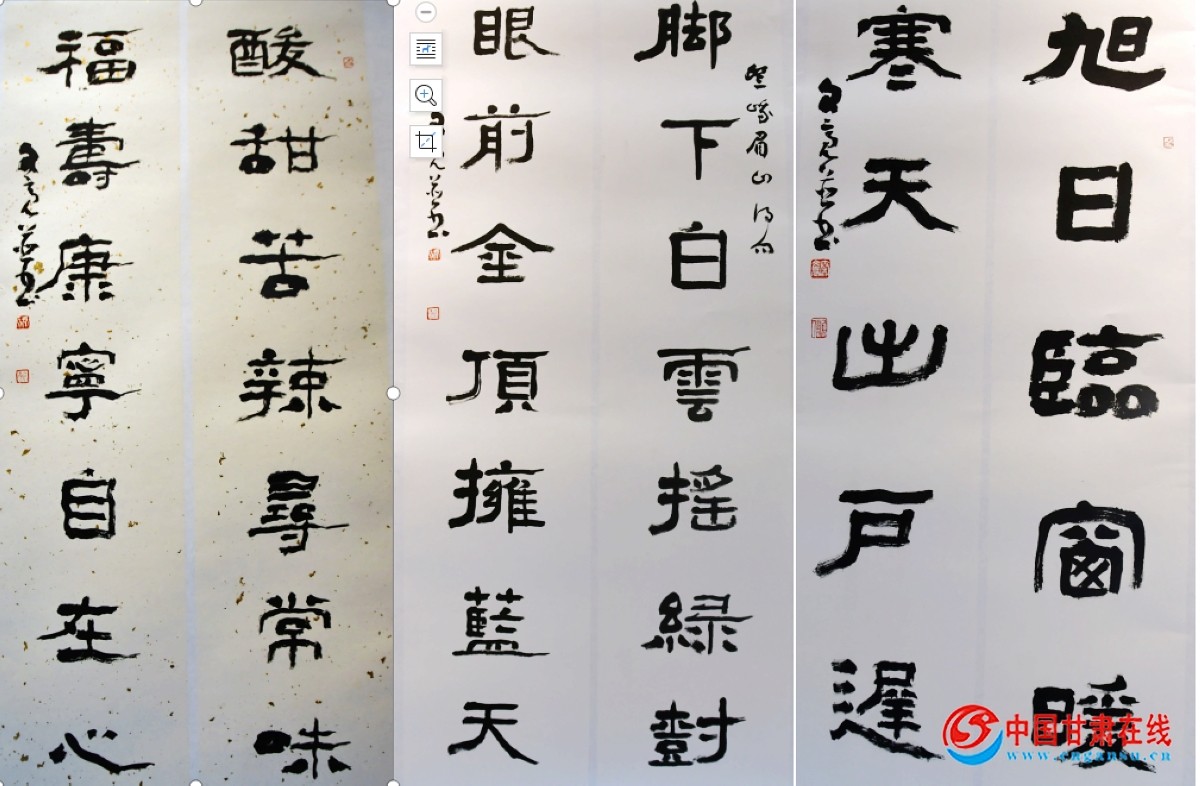 酸甜苦辣尋常味
福壽康寧自在心
登峨眉山得句
脚下白雲摇緑對
眼前金頂擁藍天
旭日臨窗暖
寒天出戶遲
中国甘肃在线
www.cngansu.cn